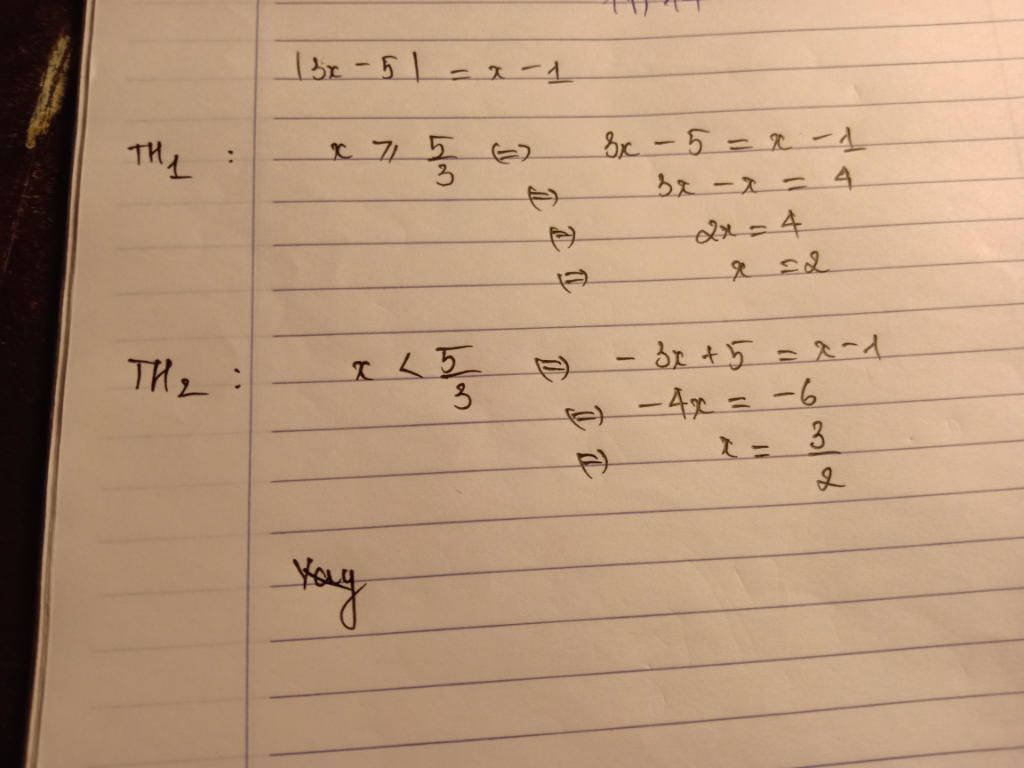 |3x - 5| = x - 1
TH1 : x ⩾ 5/3 (=) 3x - 5 = x - 1
(=) 3x - x = 4
(=) 2x = 4
(=) x = 2
TH2 : x < 5/3 (=) - 3x + 5 = x - 1
(=) - 4x = - 6
(=) x = 3/2